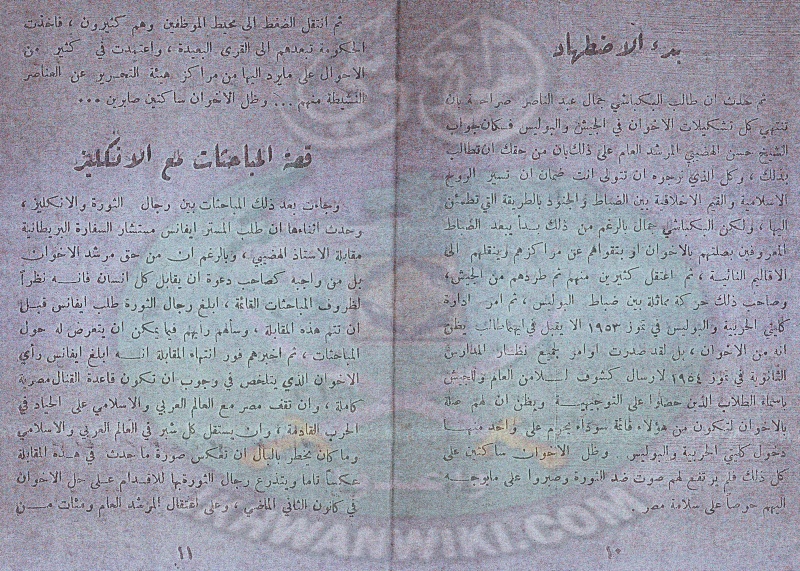 بدء الاضطهاد
ثم حدث ان طالب البكباشي جمال عبد الناصر صراحة بان
تنتهي كل تشكيلات الاخوان في الجيش والبوليس فكان جواب
الشيخ حسن الهضيبي المرشد العام على ذلك بان من حقك ان تطالب
بذلك ، وكل الذي نرجوه ان تتولى انت ضمان ان تسير الروح
الاسلامية والقيم الاخلاقية بين الضباط والجنود بالطريقة التي تطمئن
اليها ، ولكن البكباشي جمال بالرغم من ذلك بدأ يبعد الضباط
المعروفين بصلتهم بالاخوان او بتقواهم عن مراكزهم وينقلهم الى
الاقاليم النائية ، ثم اعتقل كثيرين منهم ثم طردهم من الجيش ،
وصاحب ذلك حركة مماثلة بين ضباط البوليس ، ثم امر ادارة
كليتي الحربية والبوليس في تموز ١٩٥٣ الا يقبل في ايهما طالب يظن
انه من الاخوان ، بل لقد صدرت اوامر بجميع نظار المدارس
الثانوية في تموز ١٩٥٤ لارسال كشوف للامن العام والجيش
باسماء الطلاب الذين حصلوا على التوجيهية ويظن ان لهم صلة
بالاخوان لتكون من هؤلاء قائمة سوداء يحرم على واحد منها
دخول كليتي الحربية والبوليس وظل الاخوان ساكتين على
كل ذلك فلم يرتفع لهم صوت ضد الثورة وصبروا على مايوجه
اليهم حرصا على سلامة مصر .
١٠
ثم انتقل الضغط الى محيط الموظفين وهم كثيرون ، فاخذت
الحكومة تبعدهم الى القرى البعيدة ، واعتمدت في كثير من
الاحوال على مايرد اليها من مراكز هيئة التحرير عن العناصر
النشيطة منهم ... وظل الاخوان ساكتين صابرين ...
قصة المباحثات مع الانكليز
وجاءت بعد ذلك المباحثات بين رجال الثورة والانكليز ،
وحدث اثناءها ان طلب المستر ايفانس مستشار السفارة البريطانية
مقابلة الاستاذ الهضيبي ، وبالرغم ان من حق مرشد الاخوان
بل من واجبه كصاحب دعوة ان يقابل كل انسان فانه نظراً
لظروف المباحثات القائمة ، ابلغ رجال الثورة طلب ايفانس قبل
ان تتم هذه المقابلة ، وسألهم رأيهم فيما يمكن ان يتعرض له حول
المباحثات ، ثم اخبرهم فور انتهاء المقابلة انه ابلغ ايفانس رأي
الاخوان الذي يتلخص في وجوب ان تكون قاعدة القنال مصرية
كاملة ، وان تقف مصر مع العالم العربي والاسلامي على الحياد في
الحرب القادمة ، وان يستقل كل شبر في العالم العربي والاسلامي
وما كان يخطر بالبال ان تنعكس صورة ما حدث في هذه المقابلة
عكساً تاما ويتذرع رجال الثورة بها للاقدام على حل الاخوان
في كانون الثاني الماضي ، وعلى اعتقال المرشد العام ومئات من
١١
IKHWANWIKI.COM